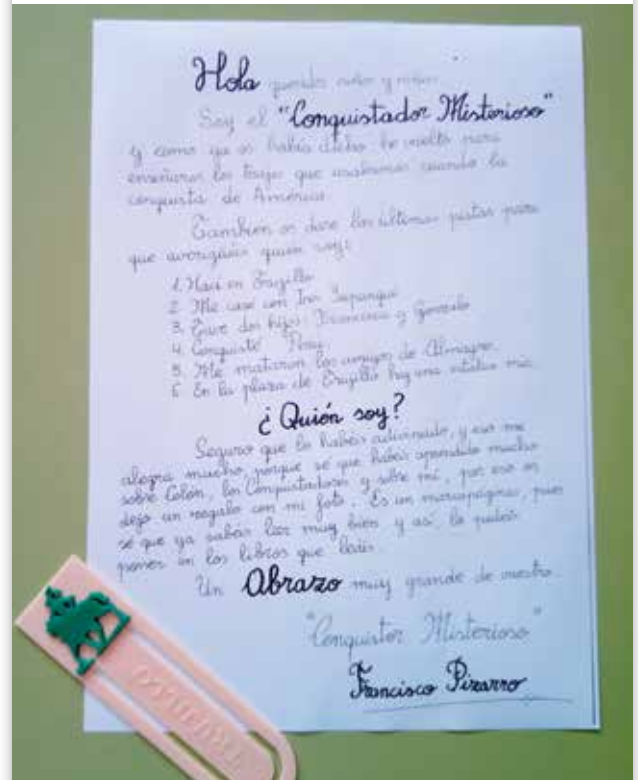 Hola queridos niños y niñas
Soy el "Conquistador Misterioso"
y como ya os había dicho he vuelto para
enseñaros los trajes que usábamos cuando la
conquista de América.
También os dare las últimas pistas para
que averigüéis quien soy:
1. Nací en Trujillo
2. Me casé con Inés Yupanqui
3. Tuve dos hijos: Francisca y Gonzalo
4. Conquisté Perú
5. Me mataron los amigos de Almagro.
6 En la plaza de Trujillo hay una estatua mía.
¿Quién soy?
Seguro que lo habéis adivinado, y eso me
alegra mucho porque sé que habéis aprendido mucho
sobre Colón, los Conquistadores y sobre mí, por eso os
dejo un regalo con mi foto. Es un marcapáginas, pues
sé que ya sabéis leer muy bien y así lo podéis
poner en los libros que leáis.
Un Abrazo muy grande de vuestro
"Conquistor Misterioso"
Francisco Pizarro
TRUJILLO